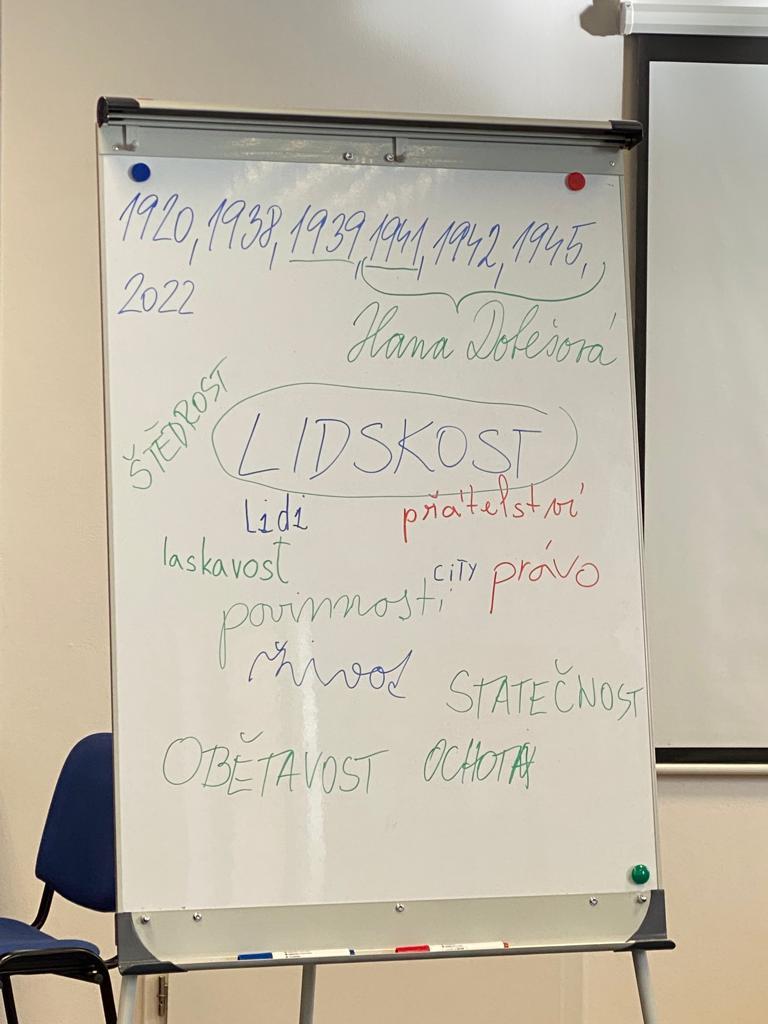 1920, 1938, 1939, 1941, 1942, 1945,
2022
Hana Dolešová
ŠTĚDROST
LIDSKOST
Lidi
přátelství
laskavost
CITY
právo
povinnosti
život
STATEČNOST
OBĚTAVOST
OCHOTA